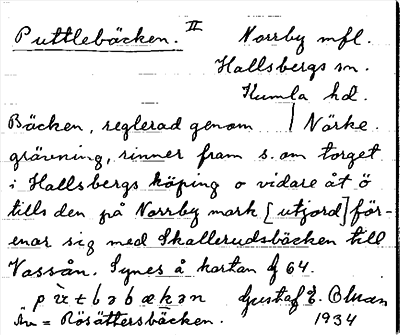 Puttlebäcken. II Norrby mfl.
Hallsbergs sn.
Kumla hd.
Bäcken, reglerad genom | Närke.
grävning, rinner fram s. om torget
i Hallsbergs köping o vidare åt ö
tills den på Norrby mark [utjord] för-
enar sig med Skallerudsbäcken till
Vassån. Synes å kartan f 64.
Gustaf E. Olsson
Äv = Rösättersbäcken. 1934